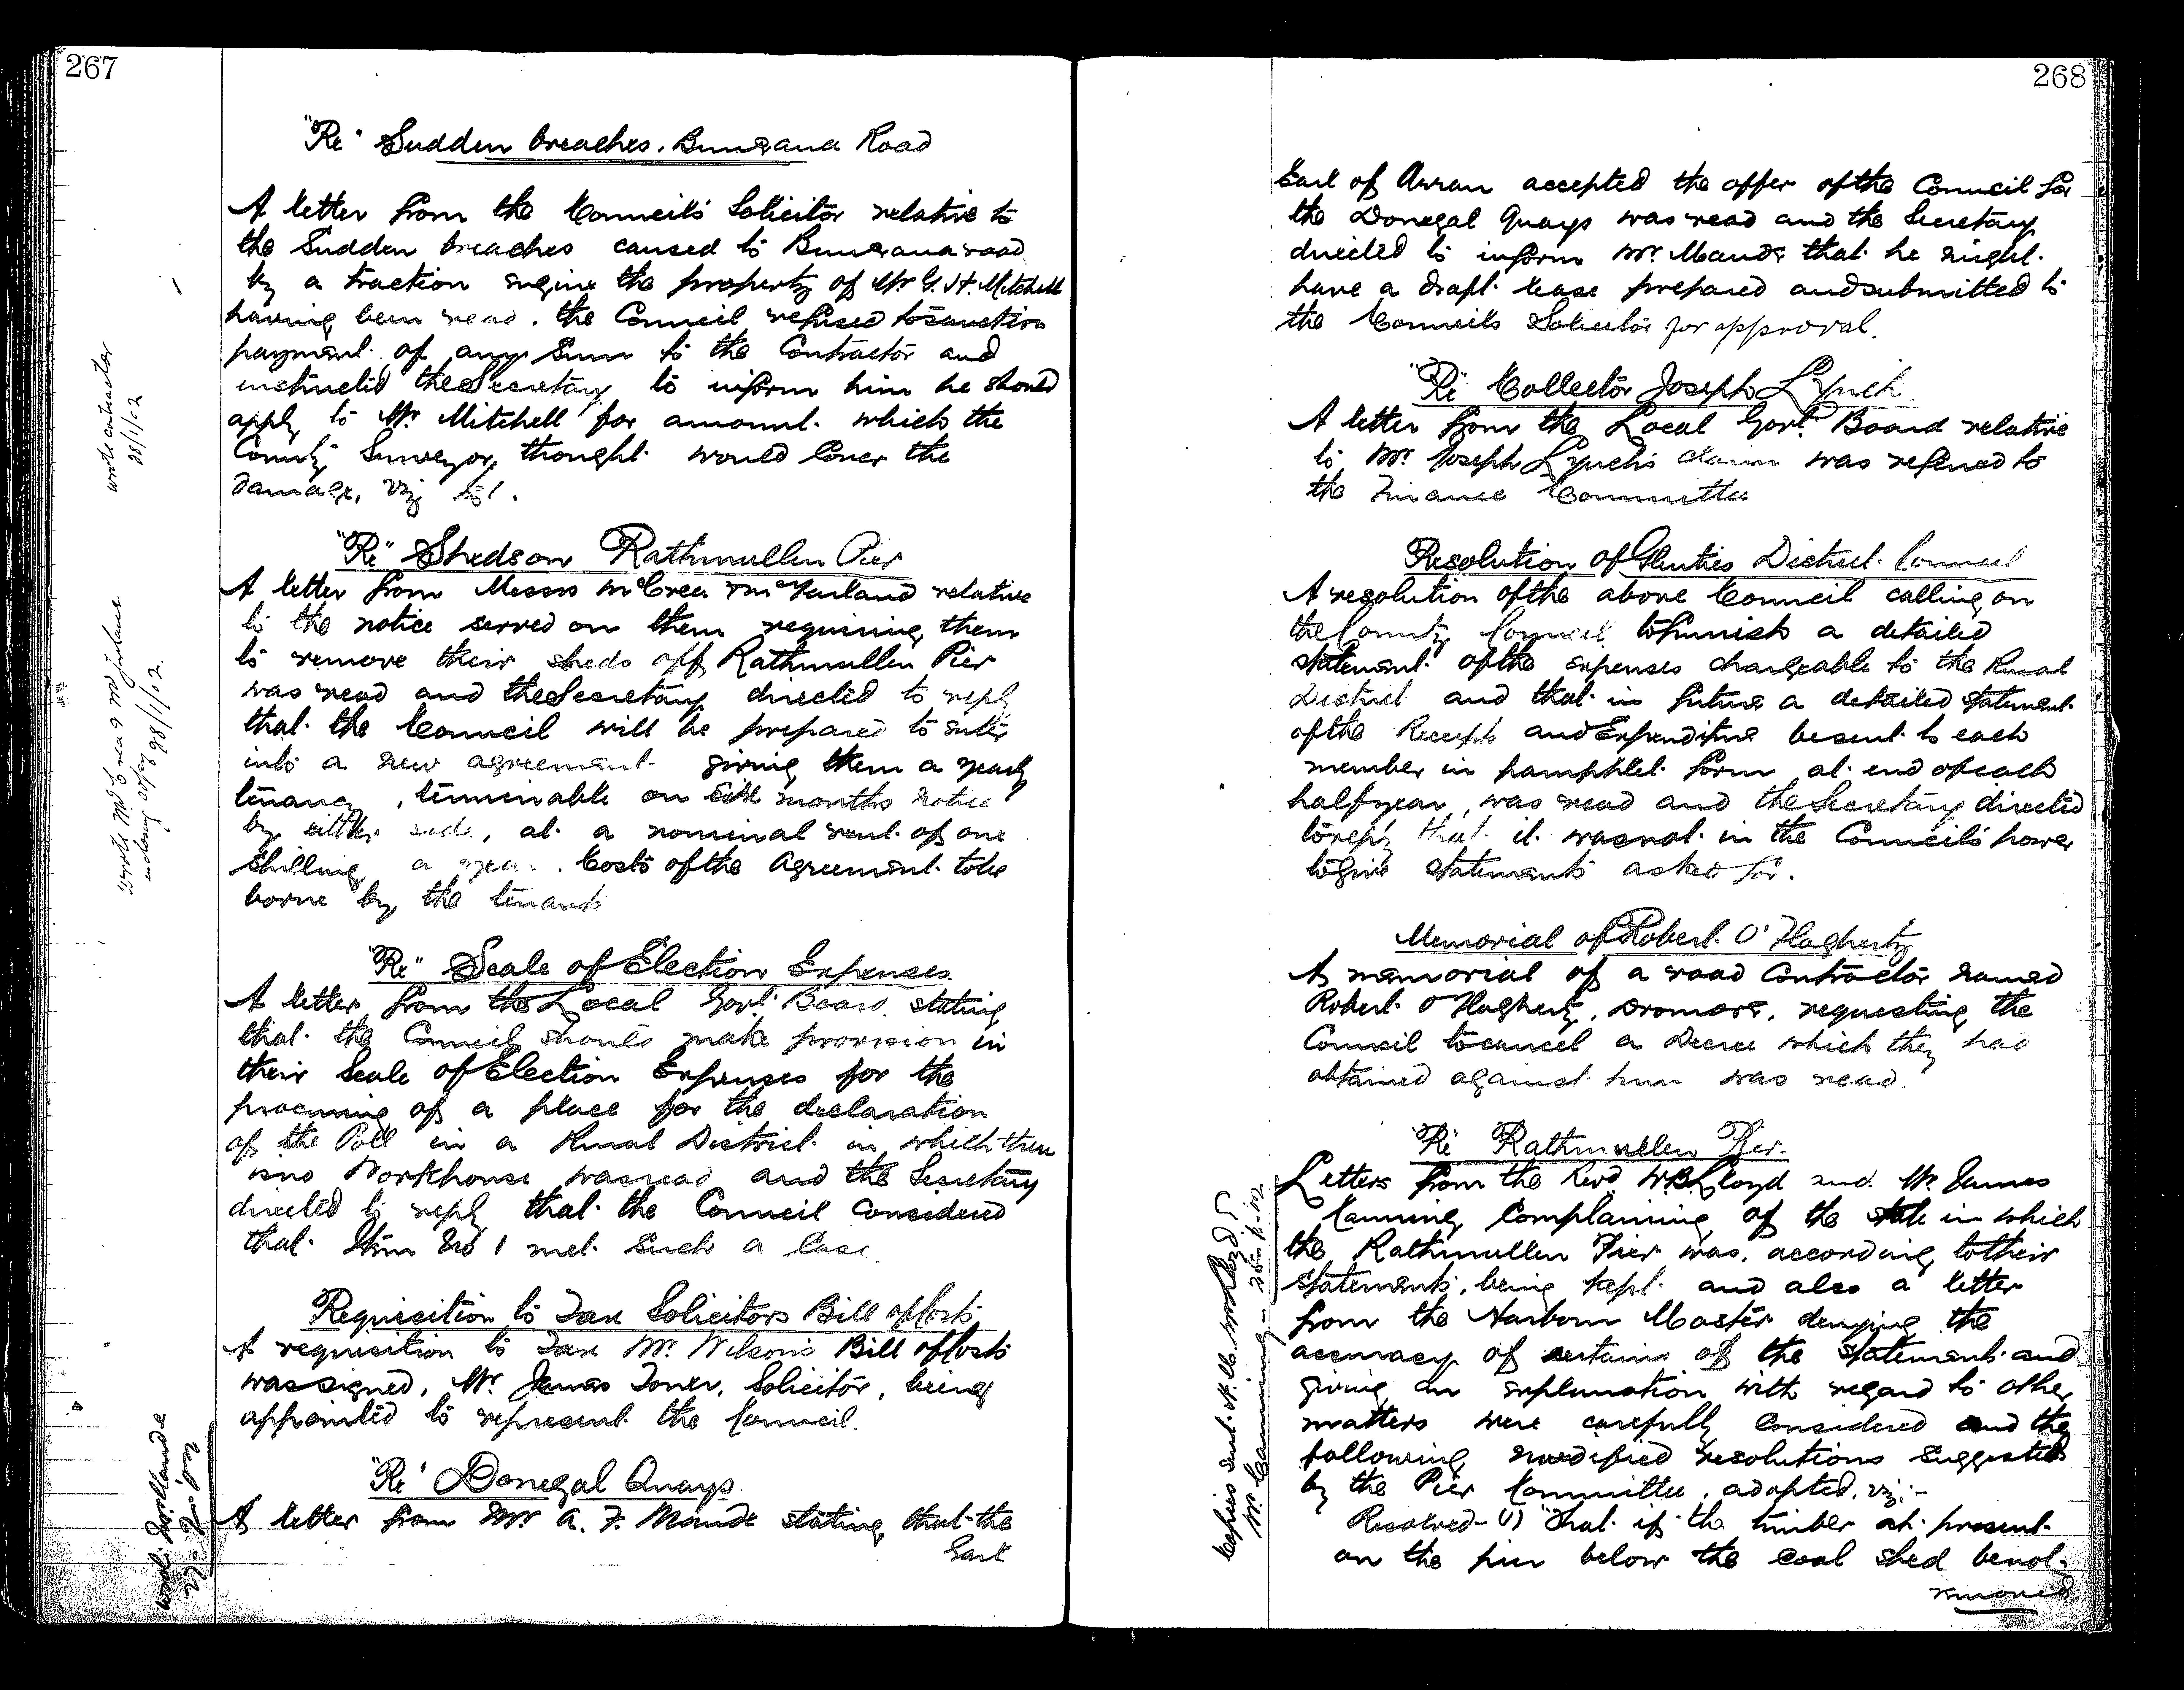 267
"Re" Sudden breaches. Buncrana Road
A letter from the Council's Solicitor relative to
the Sudden breaches caused to Buncrana road
by a traction engine the property of Mr G. H. Mitchell
having been read, the Council refused to sanction
payment of any Sum to the Contractor and
instructed the Secretary to inform him he should
apply to Mr Mitchell for amount which the
County Surveyor thought would Cover the
damage, viz
wrote contractor
28/1/02
"Re" Sheds on Rathmullen Pier
A letter from Messrs McCrea & McFarland relative
to the notice served on them requiring them
to remove their sheds off Rathmullen Pier
was read and the Secretary directed to reply
that the Council will be prepared to enter
into a new agreement giving them a yearly
tenancy, terminable on six months notice
by either side, at a nominal rent of one
shilling a year. Costs of the Agreement to be
borne by the tenants
wrote McCrea & McFarland
28/1/02
"Re" Scale of Election Expenses
A letter from the Local Govt. Board stating
that the Council should make provision in
their Scale of Election Expenses for the
procuring of a place for the declaration
of the Poll in a Rural District in which there
is no Workhouse was read and the Secretary
directed to reply that the Council Considered
that Item No 1 met Such a Case
Requisition to Tax Solicitors Bill of Costs
A requisition to Tax Mr. Wilson's Bill of Costs
was signed, Mr. James Toner, Solicitor, being
appointed to represent the Council.
"Re" Donegal Quays.
A letter from Mr A. F. Maude stating that the
Earl
268
Earl of Arran accepted the offer of the Council for
the Donegal Quays was read and the Secretary
directed to inform Mr. Maude that he might
have a draft lease prepared and submitted to
the Council's Solicitor for approval.
"Re" Collector Joseph Lynch
A letter from the Local Govt. Board relative
to Mr. Joseph Lynch's claim was referred to
the Finance Committee
Resolution of Glenties District Council
A resolution of the above Council calling on
the County Council to furnish a detailed
statement of the expenses chargeable to the Rural
District and that in future a detailed statement
of the Receipts and Expenditure be sent to each
member in pamphlet form at end of each
half year, was read and the Secretary directed
to reply that it was not in the Council's power
to give statements asked for.
Memorial of Robert O'Flagherty
A memorial of a road Contractor named
Robert O'Flagherty, Dromore, requesting the
Council to cancel a Decree which they had
obtained against him was read.
"Re" Rathmullen Pier.
Letters from the Revd W.B. Lloyd and Mr. James
Canning Complaining of the state in which
the Rathmullen Pier was, according to their
statements, being kept and also a letter
from the Harbour Master denying the
accuracy of certain of the statements and
giving an explanation with regard to other
matters were carefully Considered and the
following modified resolutions suggested
by the Pier Committee, adopted, viz:-
Resolved- (1) "That if the timber at present
on the pier below the coal shed be not
removed